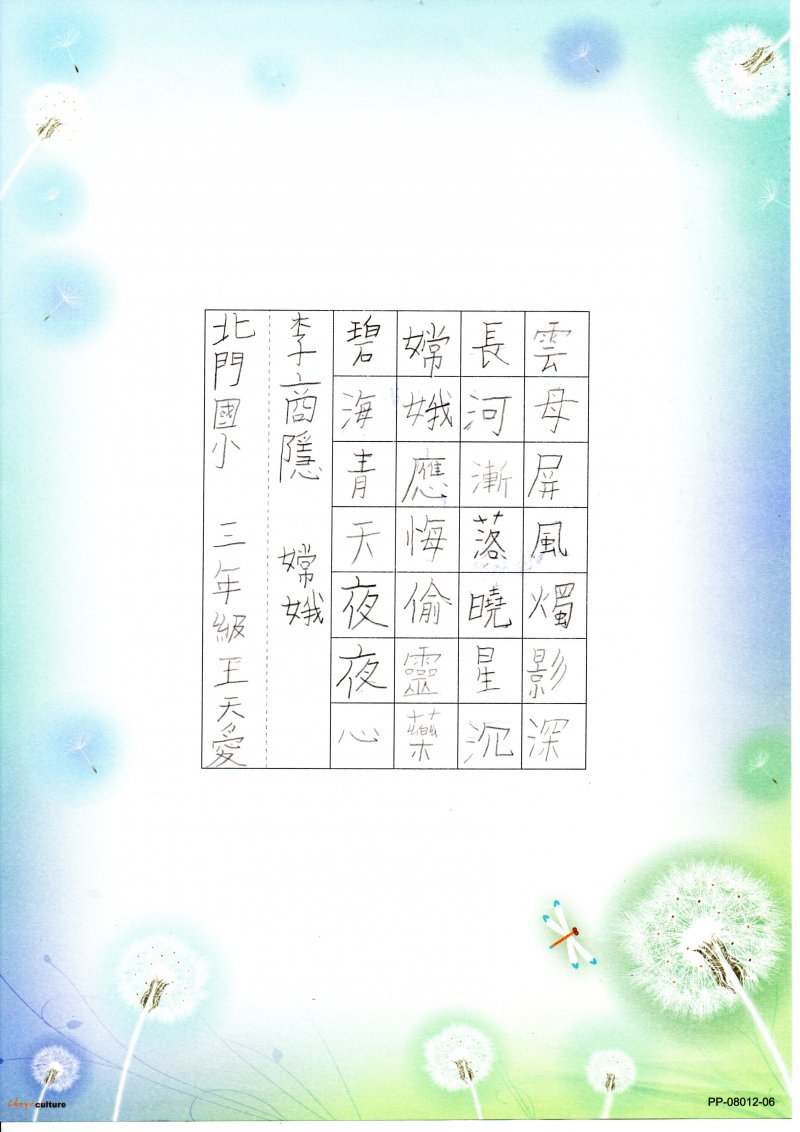 雲母屏風燭影深
長河漸落曉星沉
嫦娥應悔偷靈藥
碧海青天夜夜心
李商隱 嫦娥
北門國小 三年級王天愛
culture
PP-08012-06